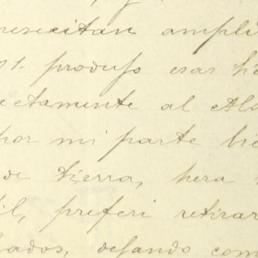 necesitan ampli
produjo esas tie
ctamente al Al
por mi parte bie
de tierra, hera
il, preferi retirar
ados, dejando com